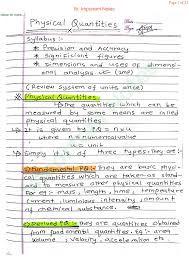 Page 1 of 21
Br. Important Notes
Physical Quantities
Syllabus :-
* Precision and Accuracy
* significant figures
* dimensions and uses of dimensi-
onal analysis
(Review system of units once)
* Physical Quantities
The quantities which can be
measured by some means are called
physical quantities
It is given by PQ = n x u
where n = numerical value
u = unit
Simply it is of three types. They are :-
Fundamental PQ :- They are basic physi-
cal quantities which are taken as stand-
ard to measure other physical quantities
For eg:- mass, length, time, temperature
current, luminous intensity, amount
of chemical substance.
Derived PQ :- they are quantities obtained
from fundamental quantities. eg:- area
volume, velocity, acceleration etc